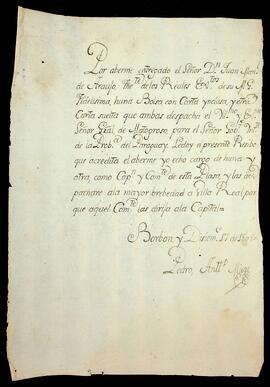 Por aberme entregado el Señor Dn Juan Man.
de Araujo, The de los Reales Extos de su M. G.
Fidelisima, huna Bolsa con Carta ynclusa, y otra
Carta suelta que ambas despacho el
Señor Gral de Matogroso, para el Señor Gobr Inte
de la Proba del Paraguay, Le doy el presente Recibo
que acredita el aberme yo echo cargo de huna y
otra, como Capn y Comte de esta Plasa, y las des
pachare ala mayor brebedad a Villa Real par
que aquel Comte las dirija ala Capital=
Borbon, y Disiem.e 17 de
Pedro, Anto